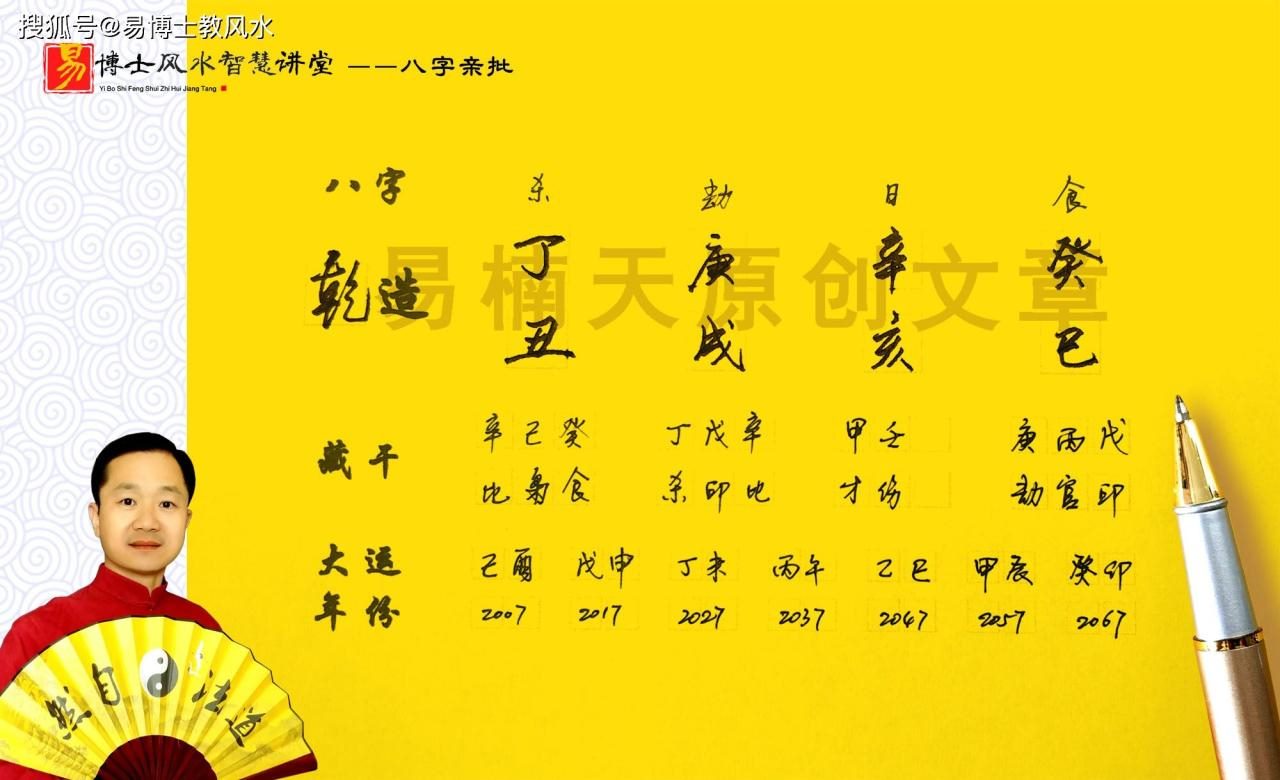 搜狐号@易博士教风水
易 博士风水智慧讲堂 ——八字亲批
Yi Bo Shi Feng Shui Zhi Hui Jiang Tang
八字 杀 劫 日 食
乾造 丁 庚 辛 癸
丑 戌 亥 巳
易楠天原创文章
藏干 辛己癸 丁戊辛 甲壬 庚丙戊
比枭食 杀印比 才伤 劫官印
大运 己酉 戊申 丁未 丙午 乙巳 甲辰 癸卯
年份 2007 2017 2027 2037 2047 2057 2067
然自法道